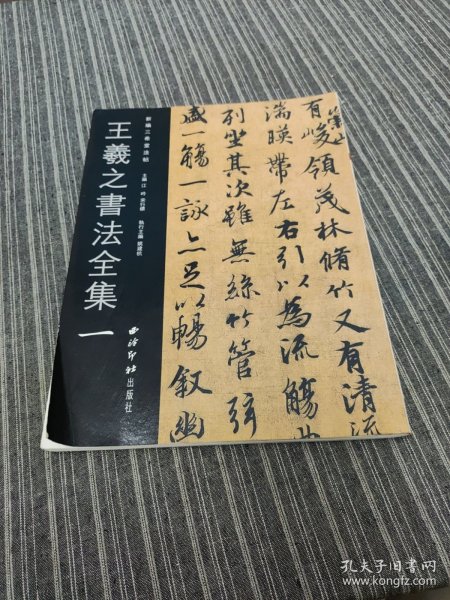 崇山
有峻領茂林脩竹又有清流
湍暎帶左右引以為流觴曲
列坐其次雖無絲竹管弦
盛一觴一詠亦足以暢敘幽
新編三希堂法帖
主編 江吟
執行主編
王羲之書法全集 一
西泠印社出版社
孔夫子旧书网
www.kongfz.com